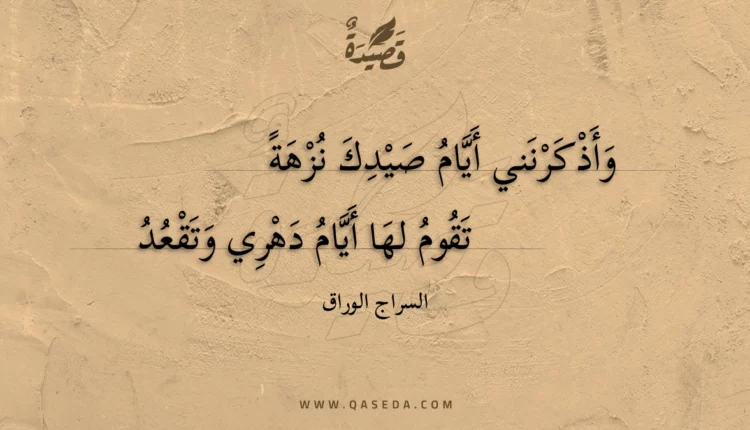 قَصِيدَةٌ
وَأَذْكَرْنَني أَيَّامُ صَيْدِكَ نُزْهَةً
تَقُومُ لهَا أَيَّامُ دَهْرِي وَتَقْعُدُ
السراج الوراق
WWW.QASEDA.COM